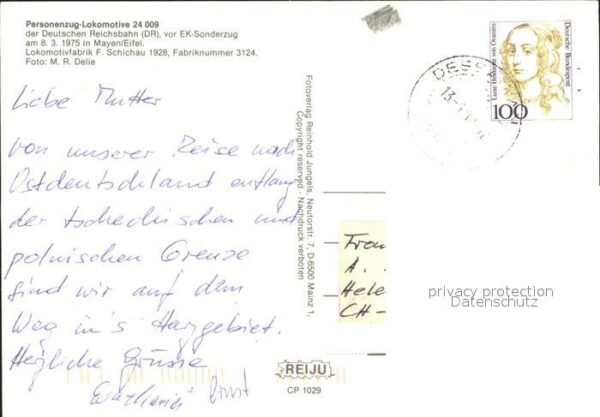 Personenzug-Lokomotive 24 009
der Deutschen Reichsbahn (DR), vor EK-Sonderzug
am 8. 3. 1975 in Mayen/Eifel.
Lokomotivfabrik F. Schichau 1928, Fabriknummer 3124.
Foto: M. R. Delie
Liebe Mutter
von unserer Reise nach
Ostdeutschland entlang
der tschechischen und
polnischen Grenze
sind wir auf dem
Weg in's Harzgebiet.
Herzliche Grüsse
+ Ernst
Fotoverlag Reinhold Jungels, Neutorstr. 7, D-6500 Mainz 1,
Copyright reserved - Nachdruck verboten
DESSAU
Luise Henriette von Oranien
Deutsche Bundespost
100
Frau
A.
Hele
CH-
privacy protection
Datenschutz
REIJU
CP 1029